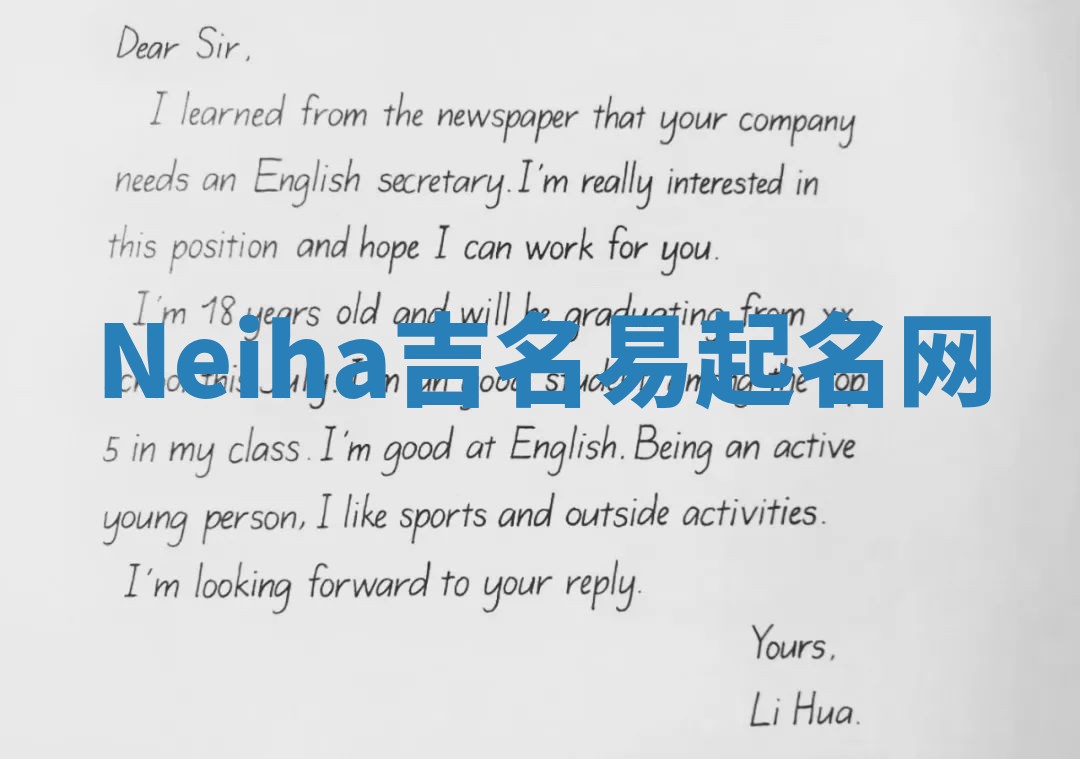 Dear Sir,
I learned from the newspaper that your company
needs an English secretary. I'm really interested in
this position and hope I can work for you.
I'm 18 years old and will be graduating from xx
Neiha吉名易起名网
this July. I'm an good student, among the top
5 in my class. I'm good at English. Being an active
young person, I like sports and outside activities.
I'm looking forward to your reply.
Yours,
Li Hua.